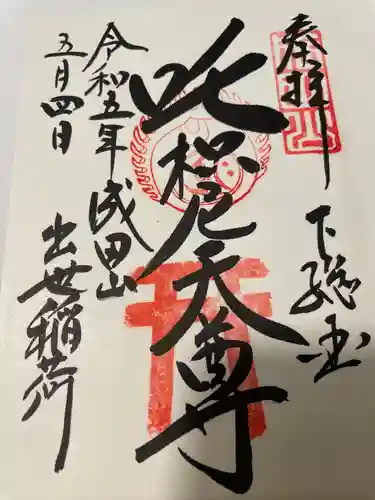 奉拝
下総国
吒枳尼天尊
令和五年
五月四日
成田山
出世稲荷